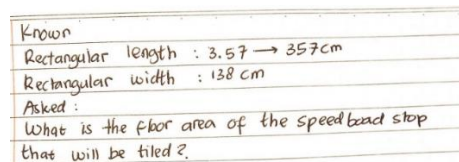 Known
Rectangular length : 3.57 → 357cm
Rectangular width : 138 cm
Asked :
What is the floor area of the speedboad stop
that will be tiled ?.